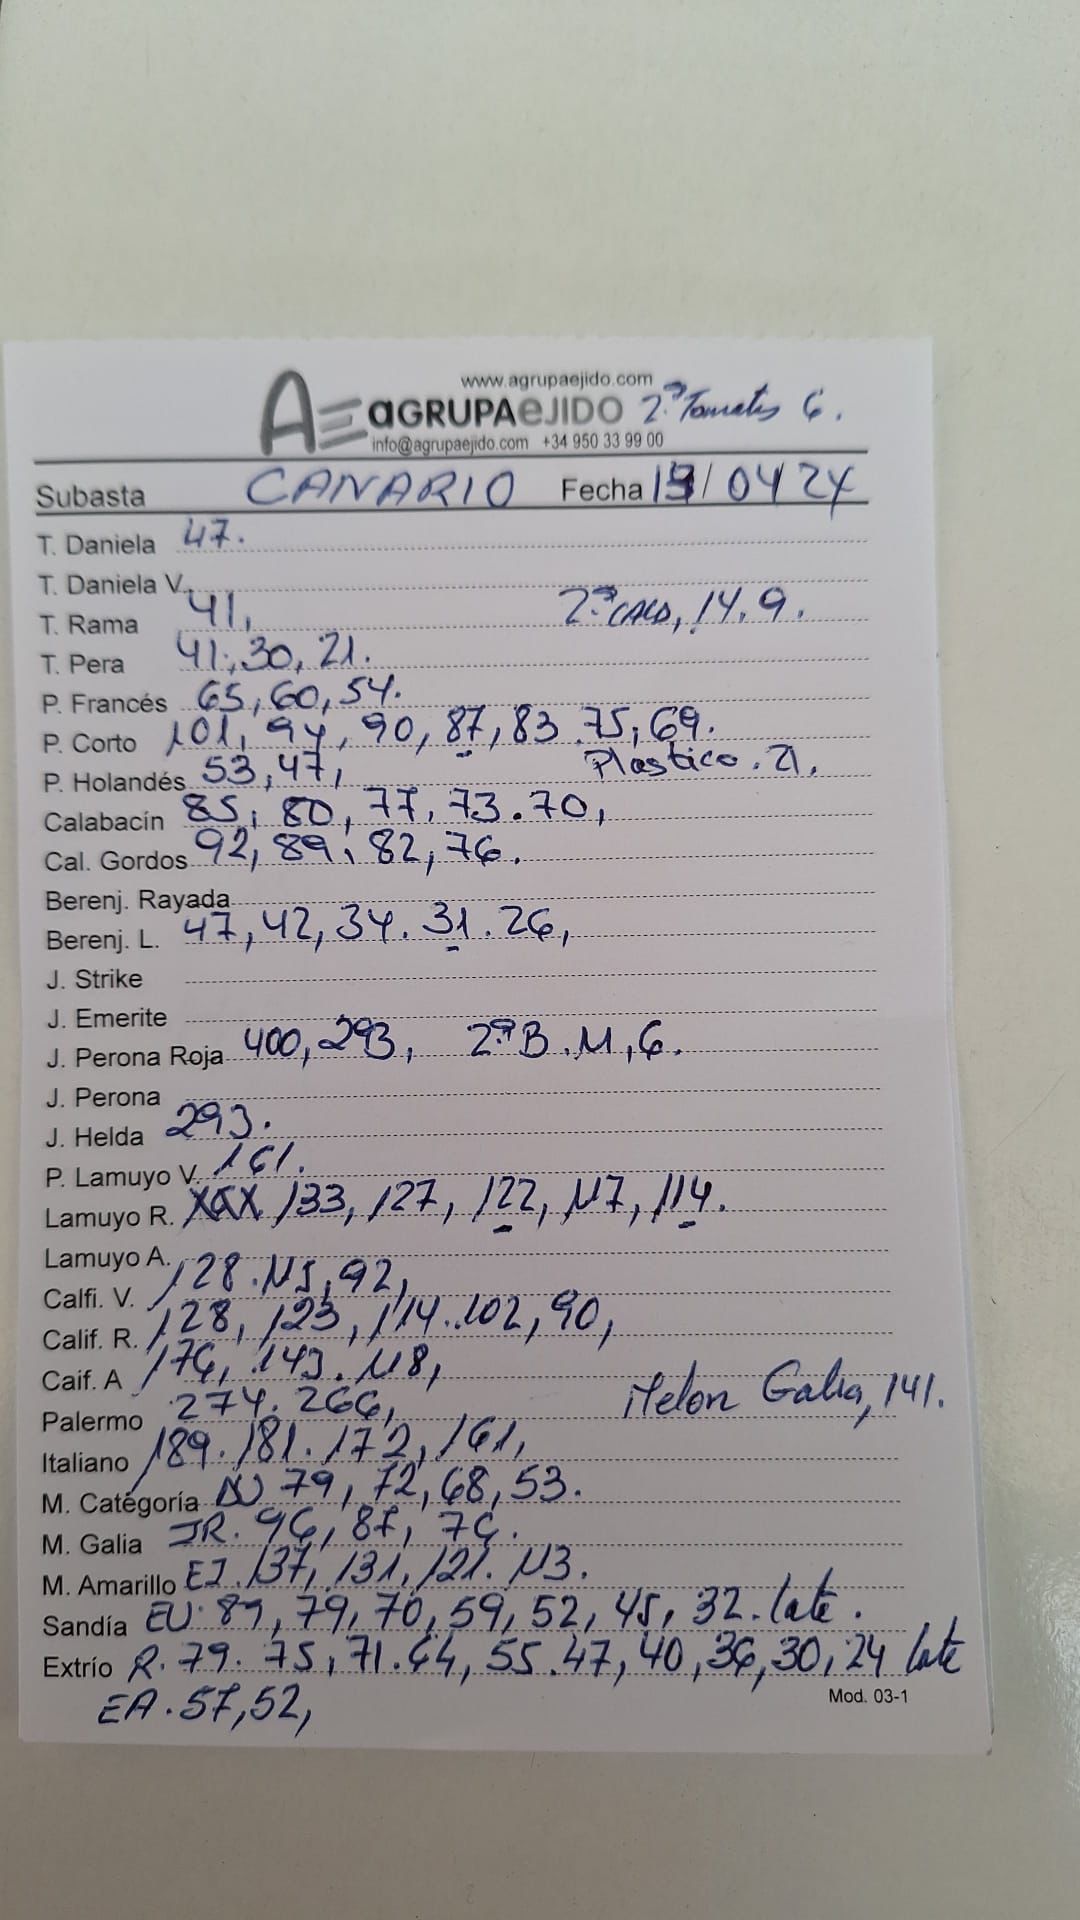 www.agrupaejido.com
AE aGRUPAeJIDO 2ª Tomates 6.
info@agrupaejido.com +34 950 33 99 00
Subasta CANARIO Fecha 19/04 24
T. Daniela 47.
T. Daniela V.
T. Rama 41, 2ª CALD, 14, 9.
T. Pera 41, 30, 21.
P. Francés 65, 60, 54.
P. Corto 101, 94, 90, 87, 83. 75, 69.
P. Holandés 53, 47, Plastico. 21.
Calabacín 85, 80, 77, 73. 70,
Cal. Gordos 92, 89, 82, 76.
Berenj. Rayada
Berenj. L. 47, 42, 34. 31. 26,
J. Strike
J. Emerite
J. Perona Roja 400, 293, 2ª B. 11, 6.
J. Perona
J. Helda 293.
P. Lamuyo V. 161.
Lamuyo R. 133, 127, 122, 117, 114.
Lamuyo A.
Calfi. V. 128. 115, 92,
Calif. R. 128, 123, 114. 102, 90,
Caif. A 176, 143. 118,
Palermo 274. 266, Melon Galia, 141.
Italiano 189. 181. 172, 161,
M. Categoría 79, 72, 68, 53.
M. Galia JR. 96, 87, 76.
M. Amarillo EJ. 137, 131, 121. 113.
Sandía EU. 89, 79, 70, 59, 52, 45, 32. late.
Extrío R. 79. 75, 71. 64, 55. 47, 40, 36, 30, 24 late
EA. 57, 52,
Mod. 03-1